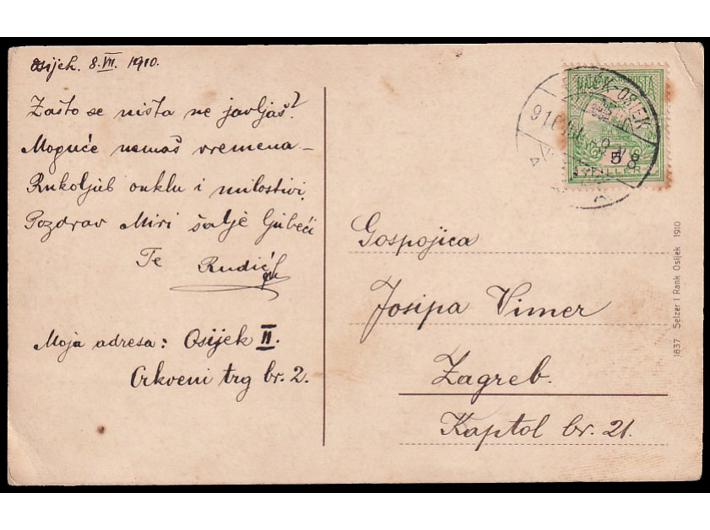 Osijek. 8. VII. 1910.
Zašto se ništa ne javljaš?
Moguće nemaš vremena –
Rukoljub onklu i milostivi,
Pozdrav Miri šalje ljubeći
Te Rudić
Moja adresa: Osijek II.
Crkveni trg br. 2.
5
FILLER
Gospojica
Josipa Vimer
Zagreb.
Kaptol br. 21.
1837 Selzer i Rank Osijek 1910